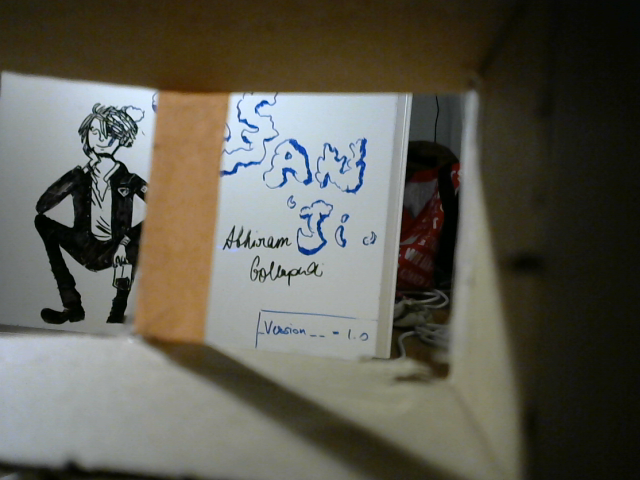 SAN
"Ji"
Abhiram
Gollapudi
Version__ = 1.0